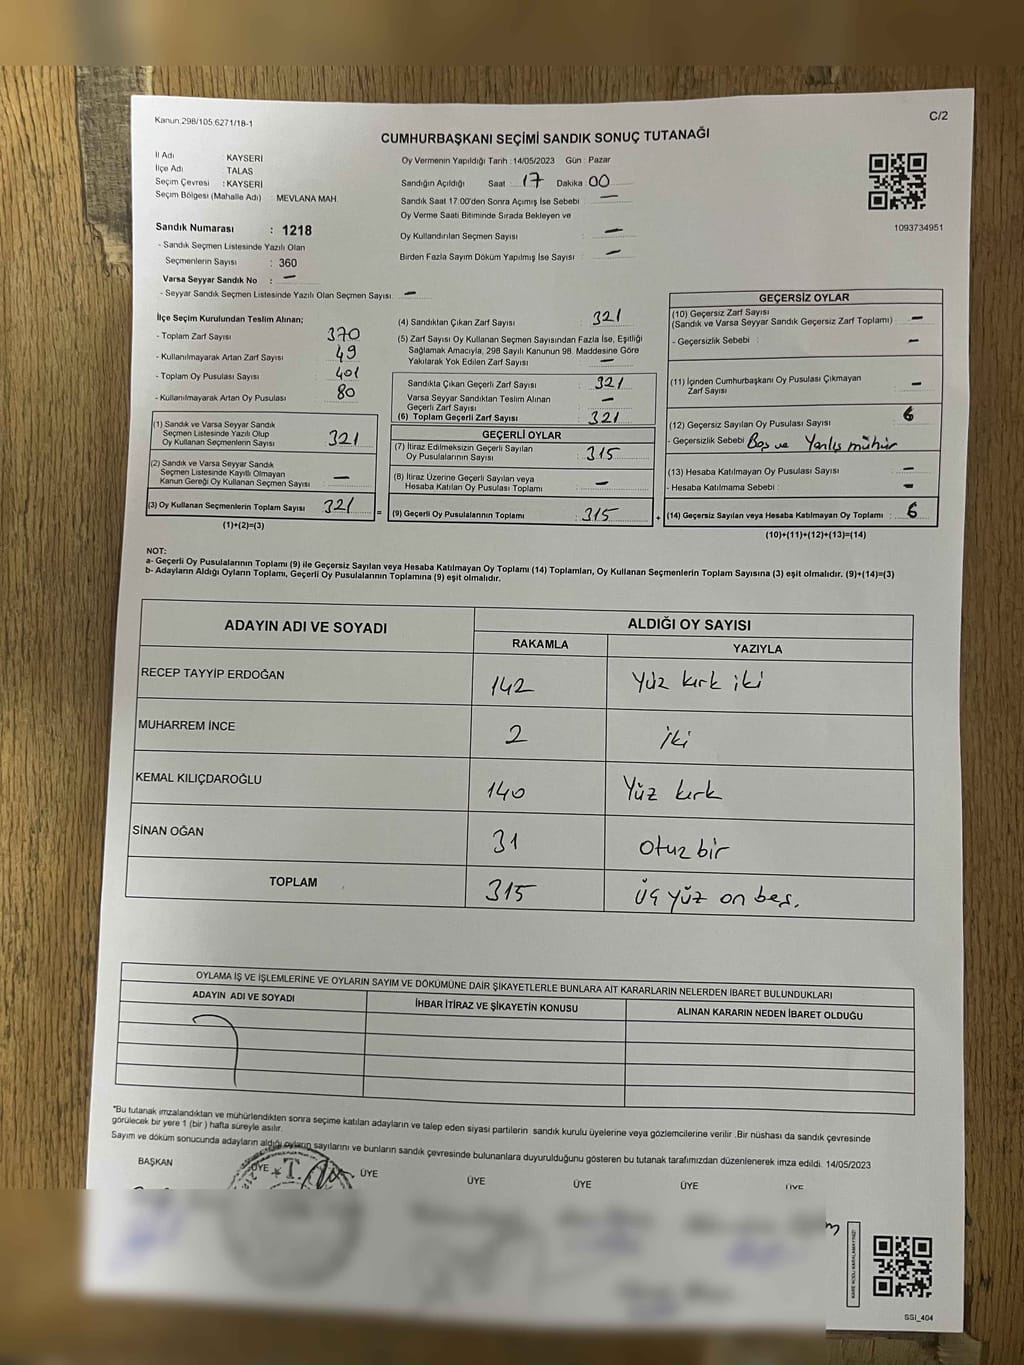 Kanun:298/105,6271/18-1
C/2
CUMHURBAŞKANI SEÇİMİ SANDIK SONUÇ TUTANAĞI
İl Adı KAYSERİ
İlçe Adı TALAS
Seçim Çevresi : KAYSERİ
Seçim Bölgesi (Mahalle Adı) : MEVLANA MAH.
Sandık Numarası : 1218
- Sandık Seçmen Listesinde Yazılı Olan
Seçmenlerin Sayısı : 360
Varsa Seyyar Sandık No : —
- Seyyar Sandık Seçmen Listesinde Yazılı Olan Seçmen Sayısı: —
Oy Vermenin Yapıldığı Tarih :14/05/2023 Gün : Pazar
Sandığın Açıldığı Saat : 17 Dakika : 00
Sandık Saat 17:00'den Sonra Açımış İse Sebebi : —
Oy Verme Saati Bitiminde Sırada Bekleyen ve
Oy Kullandırılan Seçmen Sayısı : —
Birden Fazla Sayım Döküm Yapılmış İse Sayısı : —
1093734951
İlçe Seçim Kurulundan Teslim Alınan;
- Toplam Zarf Sayısı : 370
- Kullanılmayarak Artan Zarf Sayısı : 49
- Toplam Oy Pusulası Sayısı : 401
- Kullanılmayarak Artan Oy Pusulası : 80
(1) Sandık ve Varsa Seyyar Sandık
Seçmen Listesinde Yazılı Olup
Oy Kullanan Seçmenlerin Sayısı : 321
(2) Sandık ve Varsa Seyyar Sandık
Seçmen Listesinde Kayıtlı Olmayan
Kanun Gereği Oy Kullanan Seçmen Sayısı : —
(3) Oy Kullanan Seçmenlerin Toplam Sayısı : 321
(1)+(2)=(3)
(4) Sandıktan Çıkan Zarf Sayısı : 321
(5) Zarf Sayısı Oy Kullanan Seçmen Sayısından Fazla İse, Eşitliği
Sağlamak Amacıyla, 298 Sayılı Kanunun 98. Maddesine Göre
Yakılarak Yok Edilen Zarf Sayısı : —
Sandıkta Çıkan Geçerli Zarf Sayısı : 321
Varsa Seyyar Sandıktan Teslim Alınan
Geçerli Zarf Sayısı : —
(6) Toplam Geçerli Zarf Sayısı : 321
GEÇERLİ OYLAR
(7) İtiraz Edilmeksizin Geçerli Sayılan
Oy Pusulalarının Sayısı : 315
(8) İtiraz Üzerine Geçerli Sayılan veya
Hesaba Katılan Oy Pusulası Toplamı : —
= (9) Geçerli Oy Pusulalarının Toplamı : 315
GEÇERSİZ OYLAR
(10) Geçersiz Zarf Sayısı
(Sandık ve Varsa Seyyar Sandık Geçersiz Zarf Toplamı) : —
- Geçersizlik Sebebi : —
(11) İçinden Cumhurbaşkanı Oy Pusulası Çıkmayan
Zarf Sayısı : —
(12) Geçersiz Sayılan Oy Pusulası Sayısı : 6
- Geçersizlik Sebebi : Boş ve Yanlış mühür
(13) Hesaba Katılmayan Oy Pusulası Sayısı : —
- Hesaba Katılmama Sebebi : —
+ (14) Geçersiz Sayılan veya Hesaba Katılmayan Oy Toplamı : 6
(10)+(11)+(12)+(13)=(14)
NOT:
a- Geçerli Oy Pusulalarının Toplamı (9) ile Geçersiz Sayılan veya Hesaba Katılmayan Oy Toplamı (14) Toplamları, Oy Kullanan Seçmenlerin Toplam Sayısına (3) eşit olmalıdır. (9)+(14)=(3)
b- Adayların Aldığı Oyların Toplamı, Geçerli Oy Pusulalarının Toplamına (9) eşit olmalıdır.
ADAYIN ADI VE SOYADI ALDIĞI OY SAYISI
RAKAMLA YAZIYLA
RECEP TAYYİP ERDOĞAN 142 Yüz kırk iki
MUHARREM İNCE 2 iki
KEMAL KILIÇDAROĞLU 140 Yüz kırk
SİNAN OĞAN 31 otuz bir
TOPLAM 315 üç yüz on beş.
OYLAMA İŞ VE İŞLEMLERİNE VE OYLARIN SAYIM VE DÖKÜMÜNE DAİR ŞİKAYETLERLE BUNLARA AİT KARARLARIN NELERDEN İBARET BULUNDUKLARI
ADAYIN ADI VE SOYADI İHBAR İTİRAZ VE ŞİKAYETİN KONUSU ALINAN KARARIN NEDEN İBARET OLDUĞU
*Bu tutanak imzalandıktan ve mühürlendikten sonra seçime katılan adayların ve talep eden siyasi partilerin sandık kurulu üyelerine veya gözlemcilerine verilir .Bir nüshası da sandık çevresinde
görülecek bir yere 1 (bir ) hafta süreyle asılır.
Sayım ve döküm sonucunda adayların aldığı oyların sayılarını ve bunların sandık çevresinde bulunanlara duyurulduğunu gösteren bu tutanak tarafımızdan düzenlenerek imza edildi. 14/05/2023
BAŞKAN ÜYE ÜYE ÜYE ÜYE ÜYE ÜYE
SSİ_404